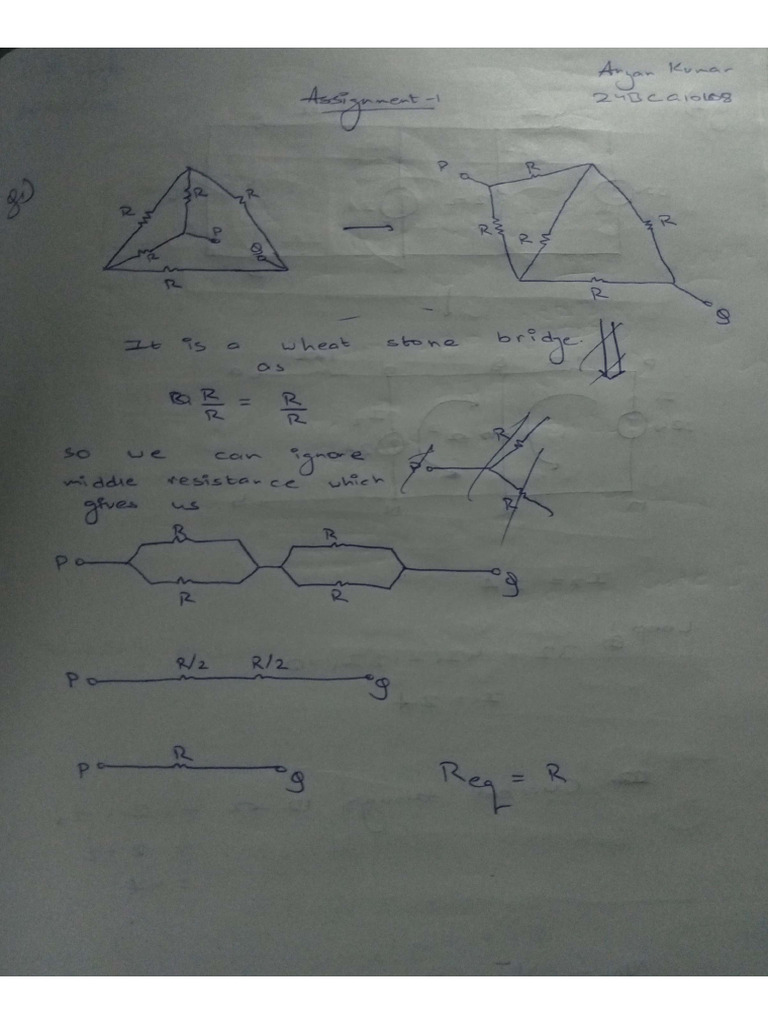 Aryan Kumar
Assignment-1
Q1)
R
R
R
P
Q
R
R
P
R
R
R
R
R
Q
It is a wheat stone bridge.
as
R/R = R/R
so we can ignore
middle resistance which
gives us
R
R
P
R
R
Q
R
R
P
R/2
R/2
Q
P
R
Q
Req = R